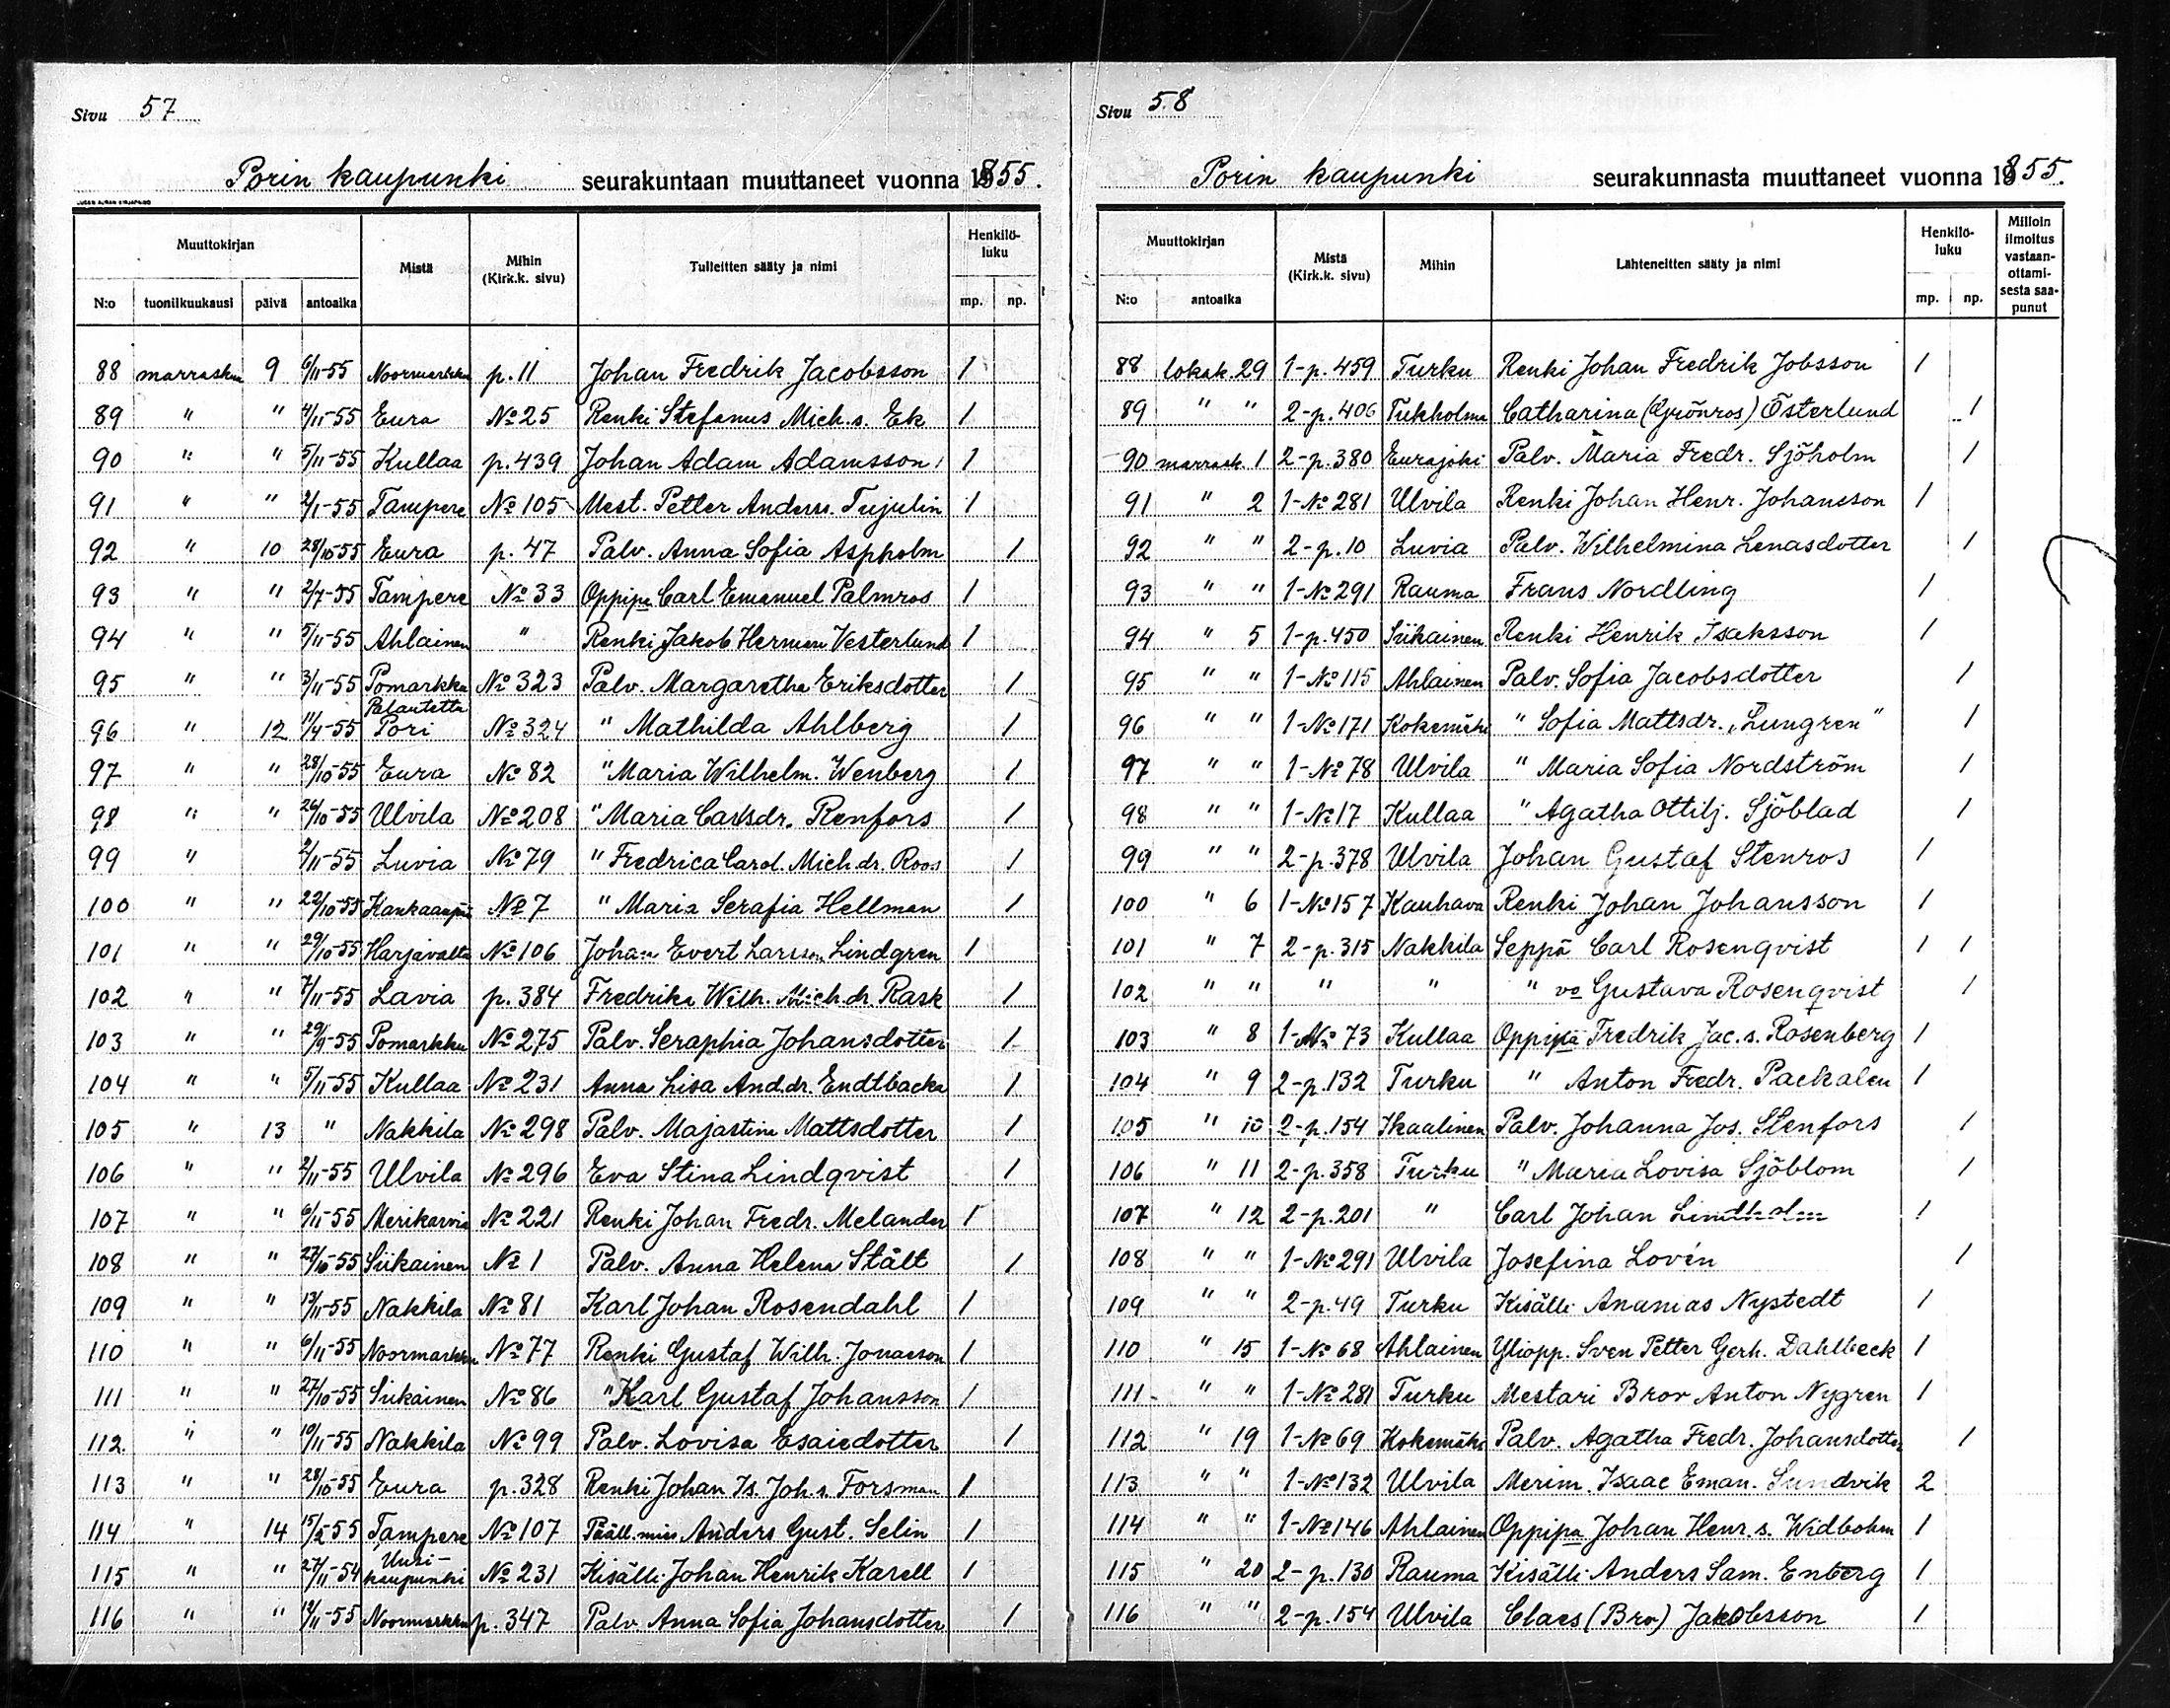 Sivu 57
Porin kaupunki seurakuntaan muuttaneet vuonna 1855.
Muuttokirjan Mistä Mihin (Kirk.k. sivu) Tulleitten sääty ja nimi Henkilöluku
N:o tuontikuukausi päivä antoaika mp. np.
88 marraskuu 9 6/11-55 Noormarkku p. 11 Johan Fredrik Jacobsson 1
89 " " 4/11-55 Eura No 25 Renki Stefanus Mich.s. Ek 1
90 " " 5/11-55 Kullaa p. 439 Johan Adam Adamsson 1
91 " " 2/1-55 Tampere No 105 Mest. Petter Anderss. Tujulin 1
92 " 10 28/10-55 Eura p. 47 Palv. Anna Sofia Aspholm 1
93 " " 2/7-55 Tampere No 33 Oppipa Carl Emanuel Palmros 1
94 " " 5/11-55 Ahlainen " Renki Jakob Herman Vesterlund 1
95 " " 3/11-55 Pomarkku No 323 Palv. Margaretha Eriksdotter 1
Palautettu
96 " 12 11/4-55 Pori No 324 " Mathilda Ahlberg 1
97 " " 28/10-55 Eura No 82 " Maria Wilhelm. Wenberg 1
98 " " 26/10-55 Ulvila No 208 " Maria Carlsdr. Renfors 1
99 " 2/11-55 Luvia No 79 " Fredrica Carol. Mich.dr. Roos 1
100 " " 22/10-55 Kankaanpää No 7 " Maria Serafia Hellman 1
101 " " 29/10-55 Harjavalta No 106 Johan Evert Larsson Lindgren 1
102 " " 7/11-55 Lavia p. 384 Fredrika Wilh. Mich.dr. Rask 1
103 " " 29/9-55 Pomarkku No 275 Palv. Seraphia Johansdotter 1
104 " " 5/11-55 Kullaa No 231 Anna Lisa And.dr. Endtbacka 1
105 " 13 " Nakkila No 298 Palv. Majastina Mattsdotter 1
106 " " 2/11-55 Ulvila No 296 Eva Stina Lindqvist 1
107 " " 6/11-55 Merikarvia No 221 Renki Johan Fredr. Melander 1
108 " " 27/10-55 Siikainen No 1 Palv. Anna Helena Stält 1
109 " " 13/11-55 Nakkila No 81 Karl Johan Rosendahl 1
110 " " 6/11-55 Noormarkku No 77 Renki Gustaf Wilh. Jonasson 1
111 " " 27/10-55 Siikainen No 86 " Karl Gustaf Johansson 1
112 " " 10/11-55 Nakkila No 99 Palv. Lovisa Esaiedotter 1
113 " " 28/10-55 Eura p. 328 Renki Johan Is. Joh.s. Forsman 1
114 " 14 15/2-55 Tampere No 107 Pääll.mies Anders Gust. Selin 1
115 " " 27/11-54 Uusikaupunki No 231 Kisälli Johan Henrik Karell 1
116 " " 12/11-55 Noormarkku p. 347 Palv. Anna Sofia Johansdotter 1
Sivu 58
Porin kaupunki seurakunnasta muuttaneet vuonna 1855.
Muuttokirjan Mistä (Kirk.k. sivu) Mihin Lähteneitten sääty ja nimi Henkilöluku Milloin ilmoitus vastaanottamisesta saapunut
N:o antoaika mp. np.
88 lokak. 29 1-p. 459 Turku Renki Johan Fredrik Jobsson 1
89 " " 2-p. 406 Tukholma Catharina (Grönros) Österlund 1
90 marrask. 1 2-p. 380 Eurajoki Palv. Maria Fredr. Sjöholm 1
91 " 2 1-No 281 Ulvila Renki Johan Henr. Johansson 1
92 " " 2-p. 10 Luvia Palv. Wilhelmina Lenasdotter 1
93 " " 1-No 291 Rauma Frans Nordling 1
94 " 5 1-p. 450 Siikainen Renki Henrik Isaksson 1
95 " " 1-No 115 Ahlainen Palv. Sofia Jacobsdotter 1
96 " " 1-No 171 Kokemäki " Sofia Mattsdr. "Lungren" 1
97 " " 1-No 78 Ulvila " Maria Sofia Nordström 1
98 " " 1-No 17 Kullaa " Agatha Ottilj. Sjöblad 1
99 " " 2-p. 378 Ulvila Johan Gustaf Stenros 1
100 " 6 1-No 157 Kauhava Renki Johan Johansson 1
101 " 7 2-p. 315 Nakkila Seppä Carl Rosenqvist 1 1
102 " " " " " vo Gustava Rosenqvist 1
103 " 8 1-No 73 Kullaa Oppipa Fredrik Jac.s. Rosenberg 1
104 " 9 2-p. 132 Turku " Anton Fredr. Packalen 1
105 " 10 2-p. 154 Ikaalinen Palv. Johanna Jos. Stenfors 1
106 " 11 2-p. 358 Turku " Maria Lovisa Sjöblom 1
107 " 12 2-p. 201 " Carl Johan Lindholm 1
108 " " 1-No 291 Ulvila Josefina Lovén 1
109 " " 2-p. 49 Turku Kisälli Ananias Nystedt 1
110 " 15 1-No 68 Ahlainen Yliopp. Sven Petter Gerh. Dahlbeck 1
111 " " 1-No 281 Turku Mestari Bror Anton Nygren 1
112 " 19 1-No 69 Kokemäki Palv. Agatha Fredr. Johansdotter 1
113 " " 1-No 132 Ulvila Merim. Isaac Eman. Sundvik 2
114 " " 1-No 146 Ahlainen Oppipa Johan Henr.s. Widbohm 1
115 " 20 2-p. 130 Rauma Kisälli Anders Sam. Enberg 1
116 " " 2-p. 154 Ulvila Claes (Bror) Jakobsson 1